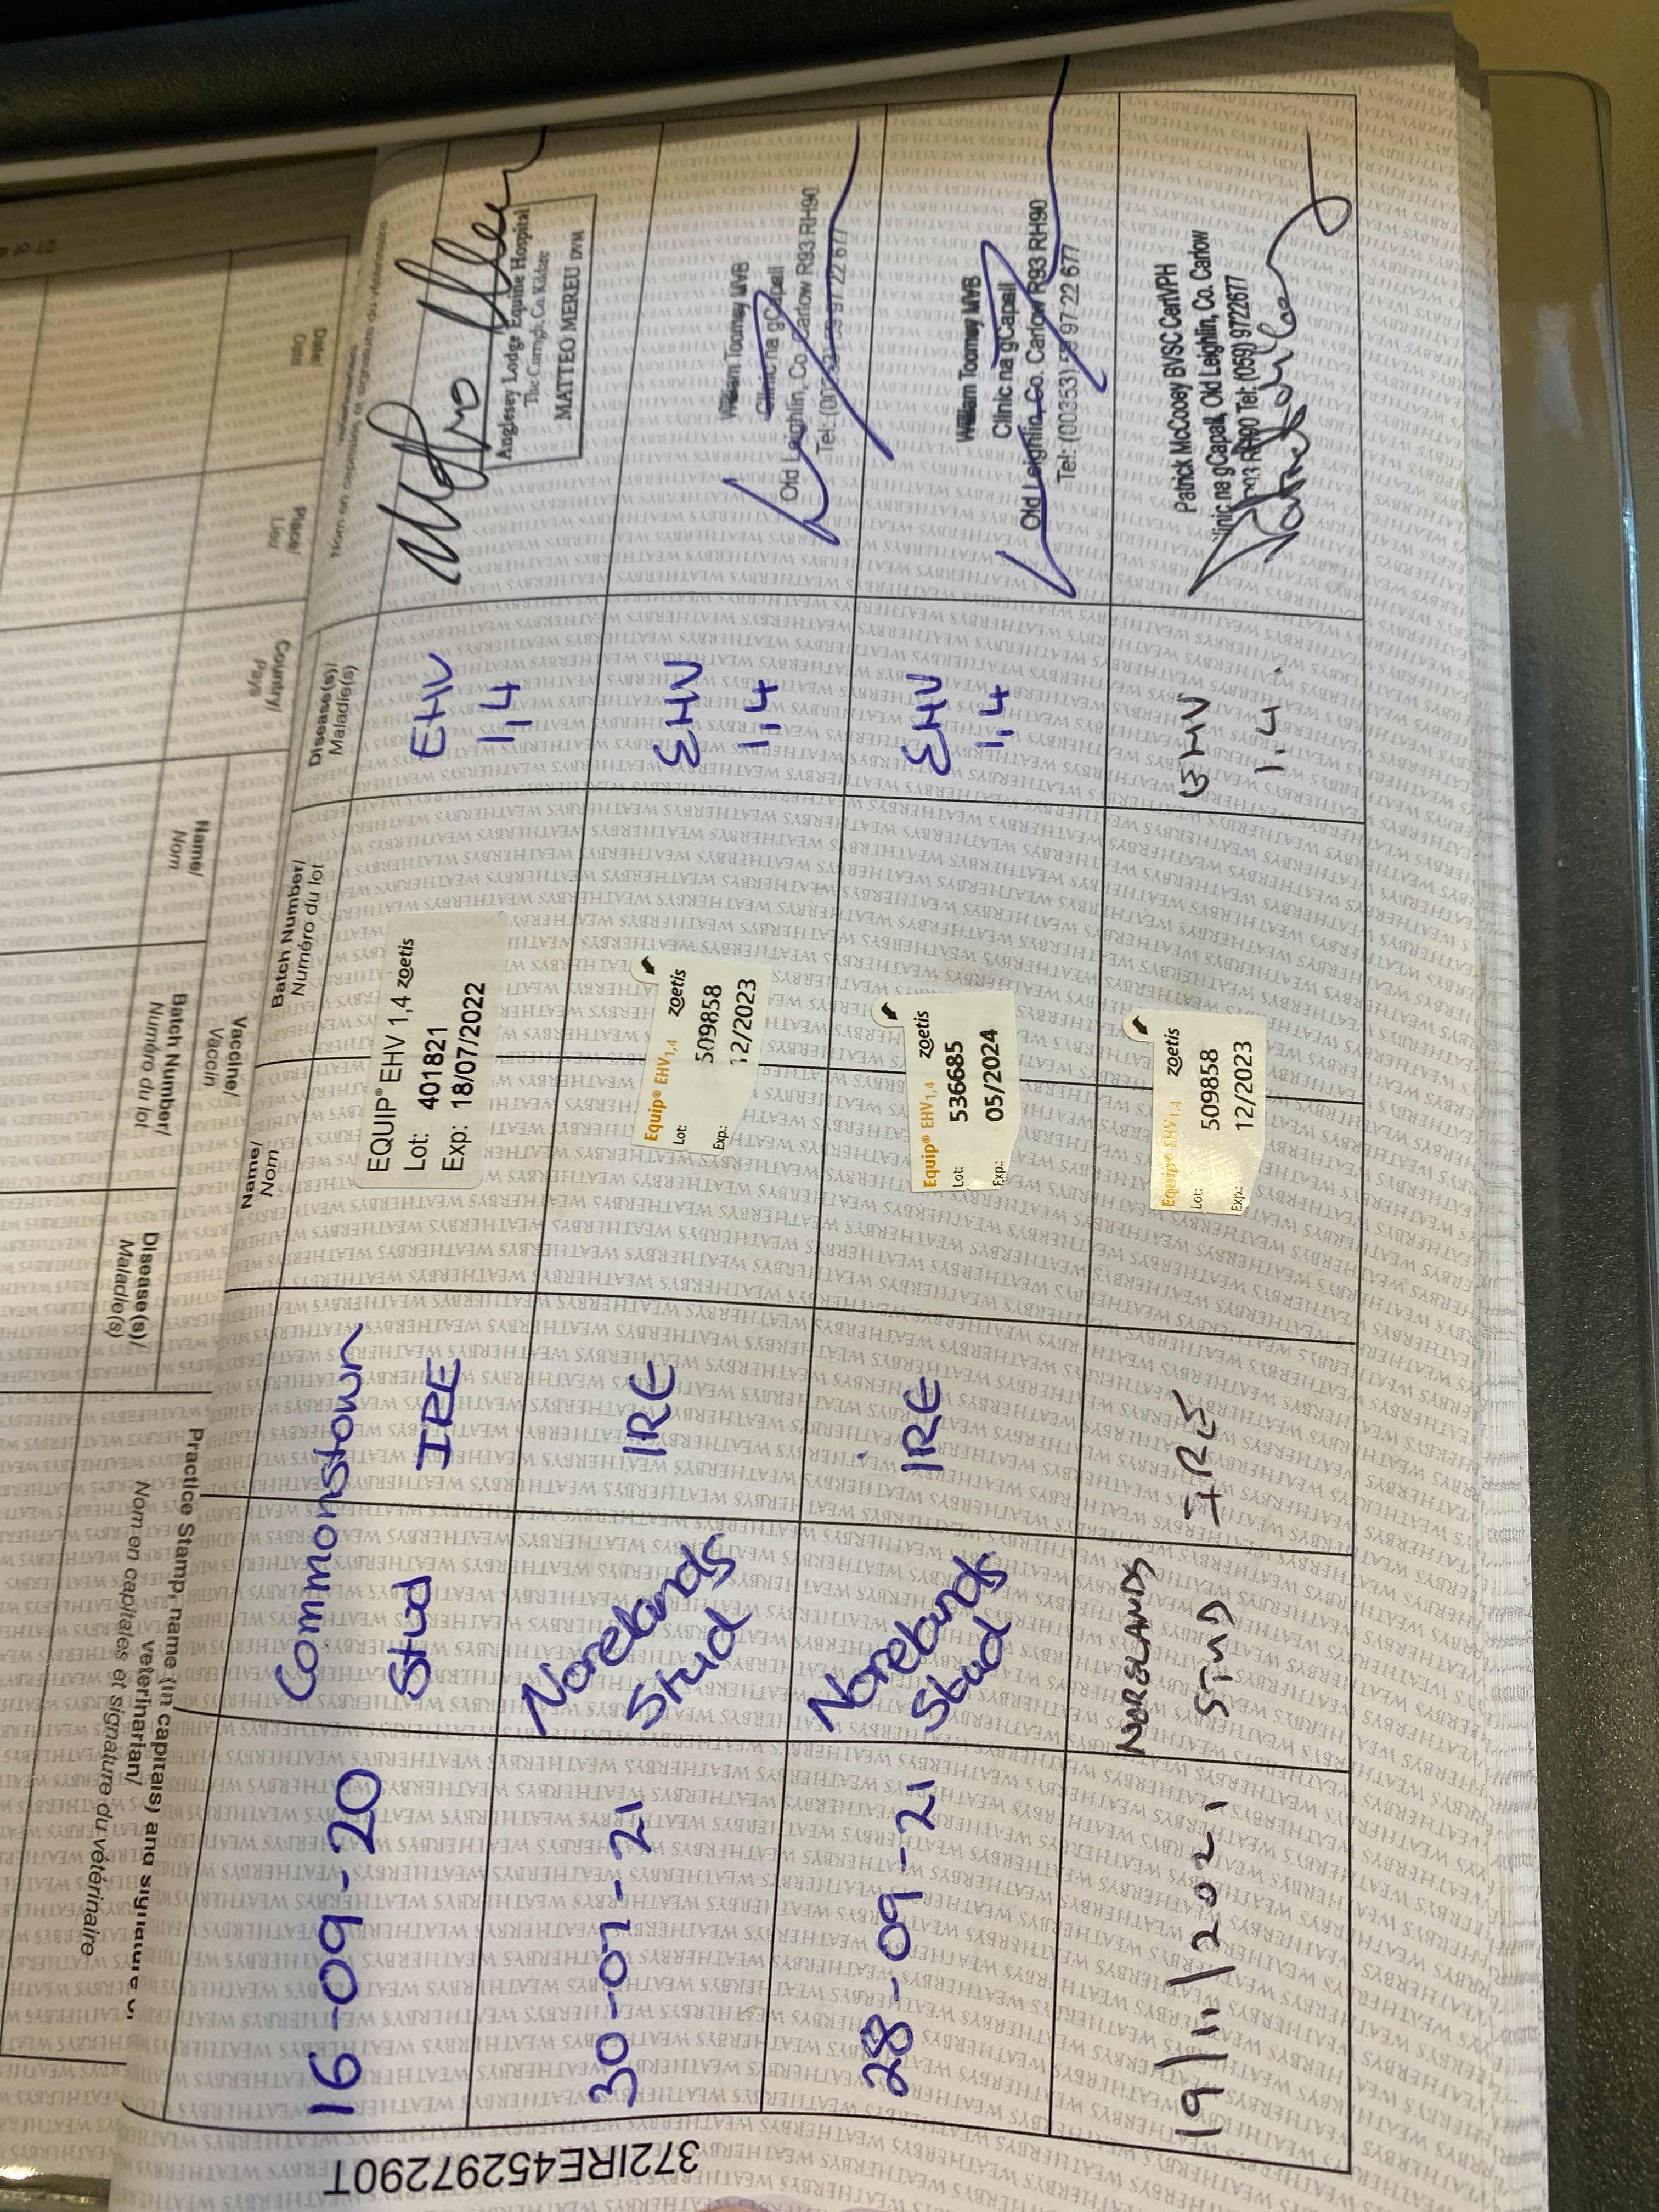 27 of
Date/
Date
Place/
Lieu
Country/
Pays/
Name/
Nom
Vaccine/
Vaccin
Batch Number/
Numéro du lot
Disease(s)/
Maladie(s)
Practice Stamp, name (in capitals) and signature of
veterinarian/
Nom en capitales et signature du vétérinaire
Name/
Nom
Batch Number/
Numéro du lot
Disease(s)/
Maladie(s)
Nom en capitales et signature du vétérinaire
16-09-20
Commonstown
Stud
IRE
EQUIP® EHV 1,4 zoetis
Lot: 401821
Exp: 18/07/2022
EHV
1,4
Anglesey Lodge Equine Hospital
The Curragh, Co. Kildare
MATTEO MEREU DVM
30-07-21
Norelands
Stud
IRE
Equip® EHV1,4 zoetis
Lot: 509858
Exp.: 12/2023
EHV
1,4
William Toomey MVB
Clinic na gCapall
Old Leighlin, Co. Carlow R93 RH90
Tel: (00353) 59 97 22 677
28-09-21
Norelands
Stud
IRE
Equip® EHV1,4 zoetis
Lot: 536685
Exp.: 05/2024
EHV
1,4
William Toomey MVB
Clinic na gCapall
Old Leighlin, Co. Carlow R93 RH90
Tel: (00353) 59 97 22 677
19/11/2021
NORELANDS
STUD
IRE
Equip® EHV1,4 zoetis
Lot: 509858
Exp.: 12/2023
EHV
1,4.
Patrick McCooey BVSC CertVPH
Clinic na gCapall, Old Leighlin, Co. Carlow
R93 RH90 Tel: (059) 9722677
372IRE45297290T